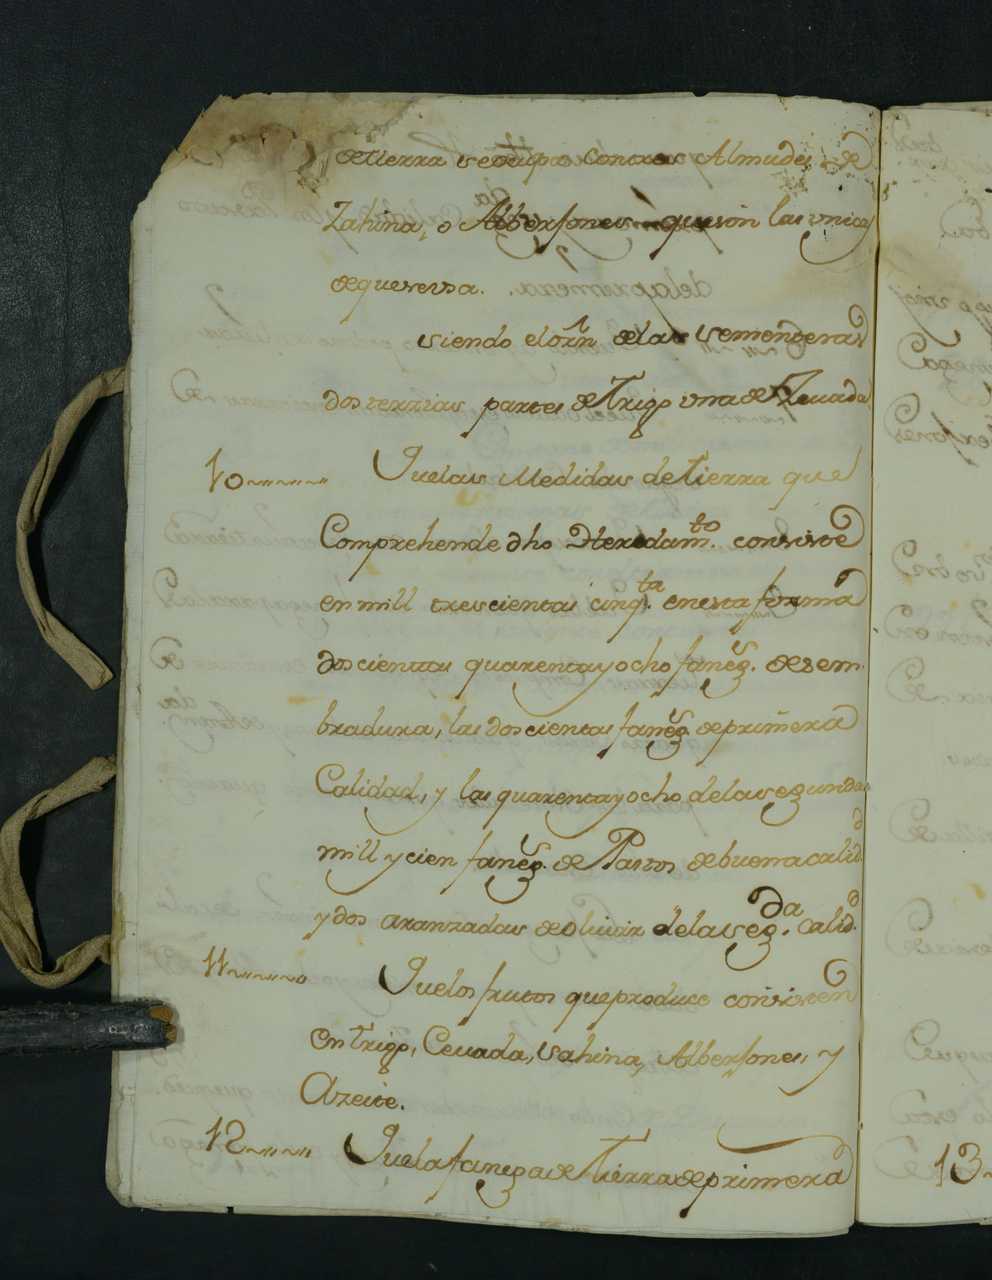 de tierra se ocupa con tres Almudes de
Zahina, o Alberjones que son las unicas
de que se usa.
siendo el orn. de las sementeras
dos terzias partes de Trigo una de Zeuada
10 Que las Medidas de tierra que
Comprehende dho Heredamto. consiste
en mill trescientas cinqta. en esta forma
doscientas quarenta y ocho faneg.s de sem-
bradura, las doscientas faneg.s de primera
Calidad, y las quarenta y ocho de la segunda
mill y cien faneg.s de Pastos de buena calidd.
y dos aranzadas de oliuar de la segda. calidd.
11 Que los frutos que produce consisten
en Trigo, Ceuada, Sahina, Alberjones, y
Azeite.
12 Que la fanega de Tierra de primera
13